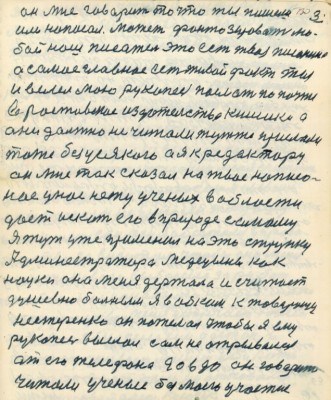 3.
он мне говорит то что ты пишеш
или написал может фантазировать лю-
бой наш писатель это ест твая писанина
а самое главное ест живой факт ты
и велел мою рукопеь по почти
в ростовское издательство книшка а
ани должно не читали тутже прислали
тоже безусякого а я к редактору
он мне так сказал на твое написо-
ное уное нету ученых в области
дает искат его в природе самому
Я тут уже применил на это струнку
Администратора Медецыны как
науки она меня держала и считает
душевно больным Я в обком к товарищу
нестеренко он пожелал чтобы я ему
рукопеь выслал сам не отрывался
ат его телефона он говорит
читали ученые без моего участие